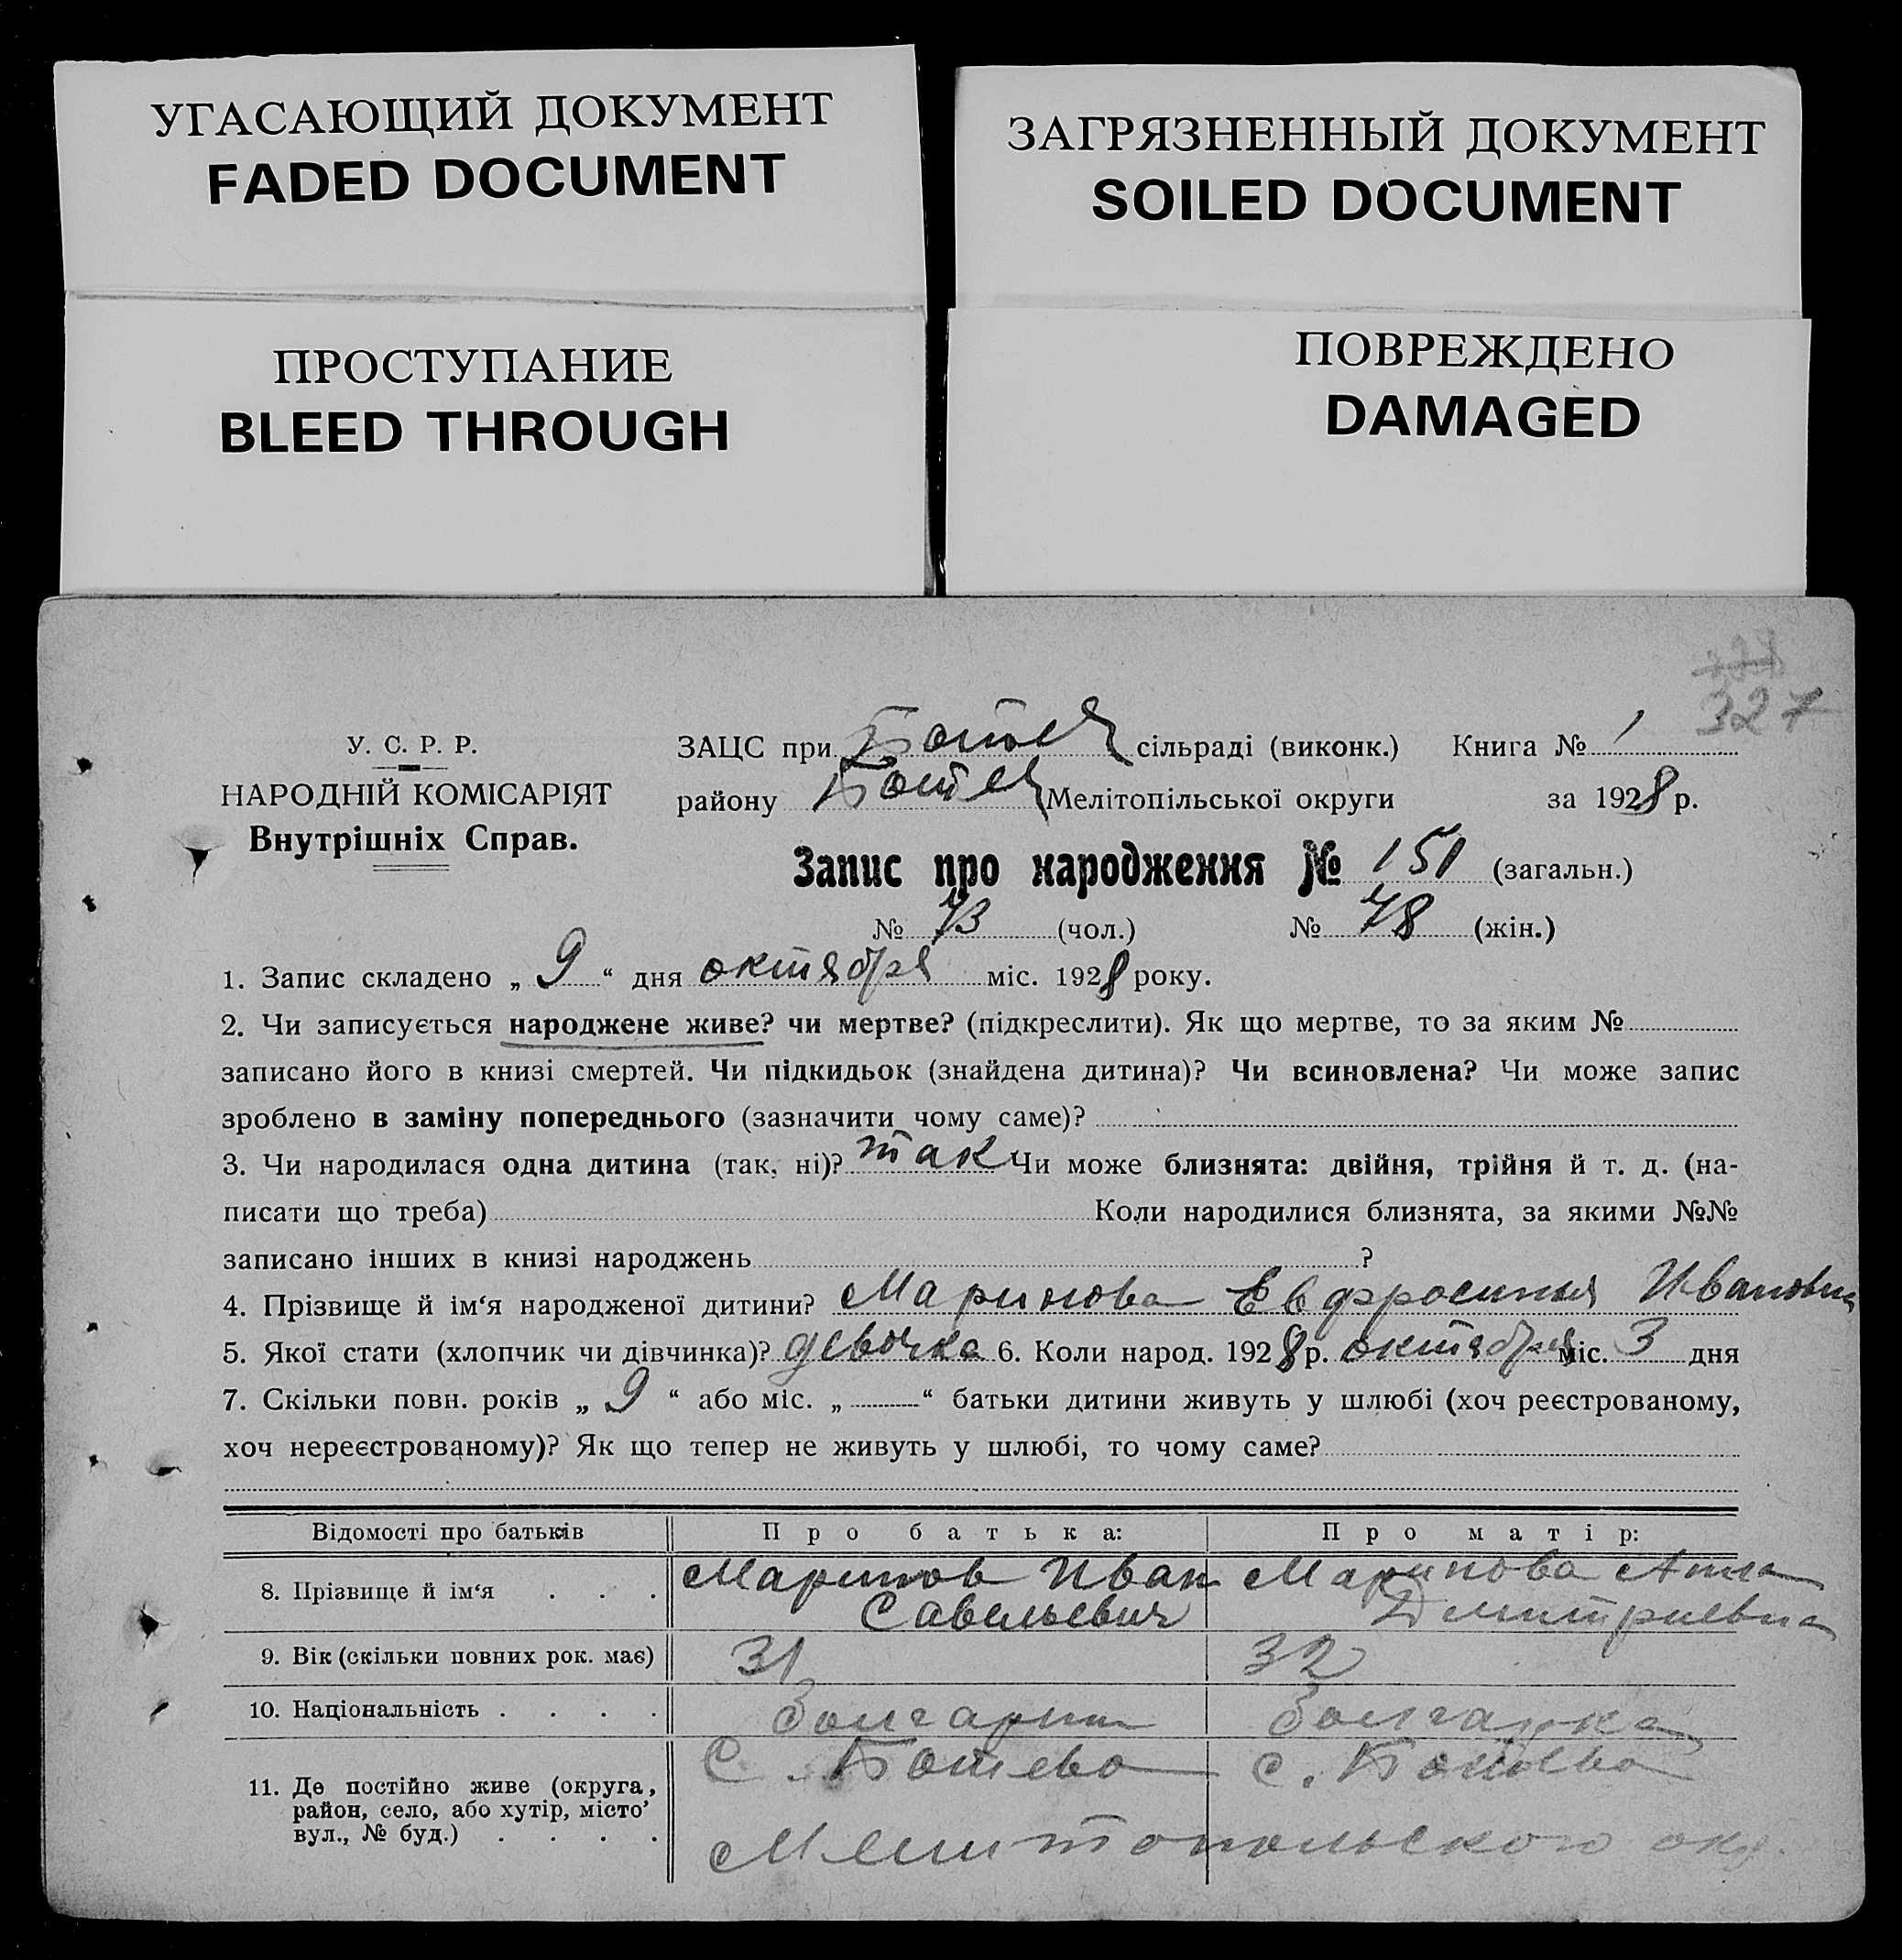 УГАСАЮЩИЙ ДОКУМЕНТ
FADED DOCUMENT
ЗАГРЯЗНЕННЫЙ ДОКУМЕНТ
SOILED DOCUMENT
ПРОСТУПАНИЕ
BLEED THROUGH
ПОВРЕЖДЕНО
DAMAGED
327
У. С. Р. Р.
НАРОДНІЙ КОМІСАРІЯТ
Внутрішніх Справ.
ЗАЦС при Ботев сільраді (виконк.) Книга № 1
району Ботев Мелітопільської округи за 1928 р.
Запис про народження № 151 (загальн.)
№ 73 (чол.) № 78 (жін.)
1. Запис складено „ 9 “ дня октября міс. 1928 року.
2. Чи записується народжене живе? чи мертве? (підкреслити). Як що мертве, то за яким №
записано його в книзі смертей. Чи підкидьок (знайдена дитина)? Чи всиновлена? Чи може запис
зроблено в заміну попереднього (зазначити чому саме)?
3. Чи народилася одна дитина (так, ні)? так Чи може близнята: двійня, трійня й т. д. (на-
писати що треба) Коли народилися близнята, за якими №№
записано інших в книзі народжень ?
4. Прізвище й ім‘я народженої дитини? Маринова Евфросинья Ивановна
5. Якої стати (хлопчик чи дівчинка)? девочка 6. Коли народ. 1928 р. октября міс. 3 дня
7. Скільки повн. років „ 9 “ або міс. „ “ батьки дитини живуть у шлюбі (хоч реєстрованому,
хоч нереєстрованому)? Як що тепер не живуть у шлюбі, то чому саме?
Відомості про батьків Про батька: Про матір:
8. Прізвище й ім‘я . . . Маринов Иван Маринова Анна
Савельевич Дмитриевна
9. Вік (скільки повних рок. має) 31 32
10. Національність . . . . болгарин болгарка
11. Де постійно живе (округа, с. Ботево с. Ботево
район, село, або хутір, місто’
вул., № буд.) . . . . Мелитопольского окр.